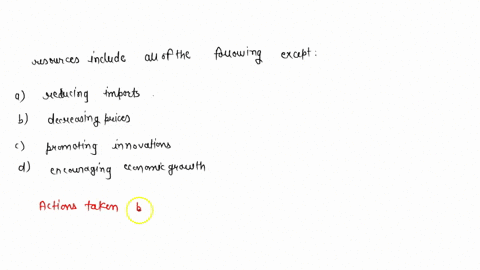 resources include all of the following except:
a) reducing imports
b) decreasing prices
c) promoting innovations
d) encouraging economic growth
Actions taken b